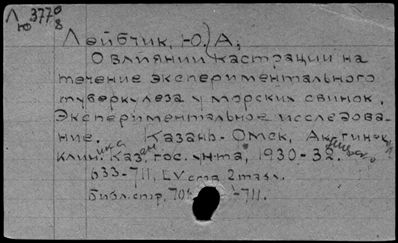 Л 3770
ю 8
Лейбчик, Ю. А.
О влиянии кастрации на
течение экспериментального
туберкулеза у морских свинок.
Экспериментальное исследова-
ние. Казань - Омск,
клиника Каз. гос. ун-та, 1930-32.
633-711, LV стр. 2 табл.
Библ. стр. 70 -711.